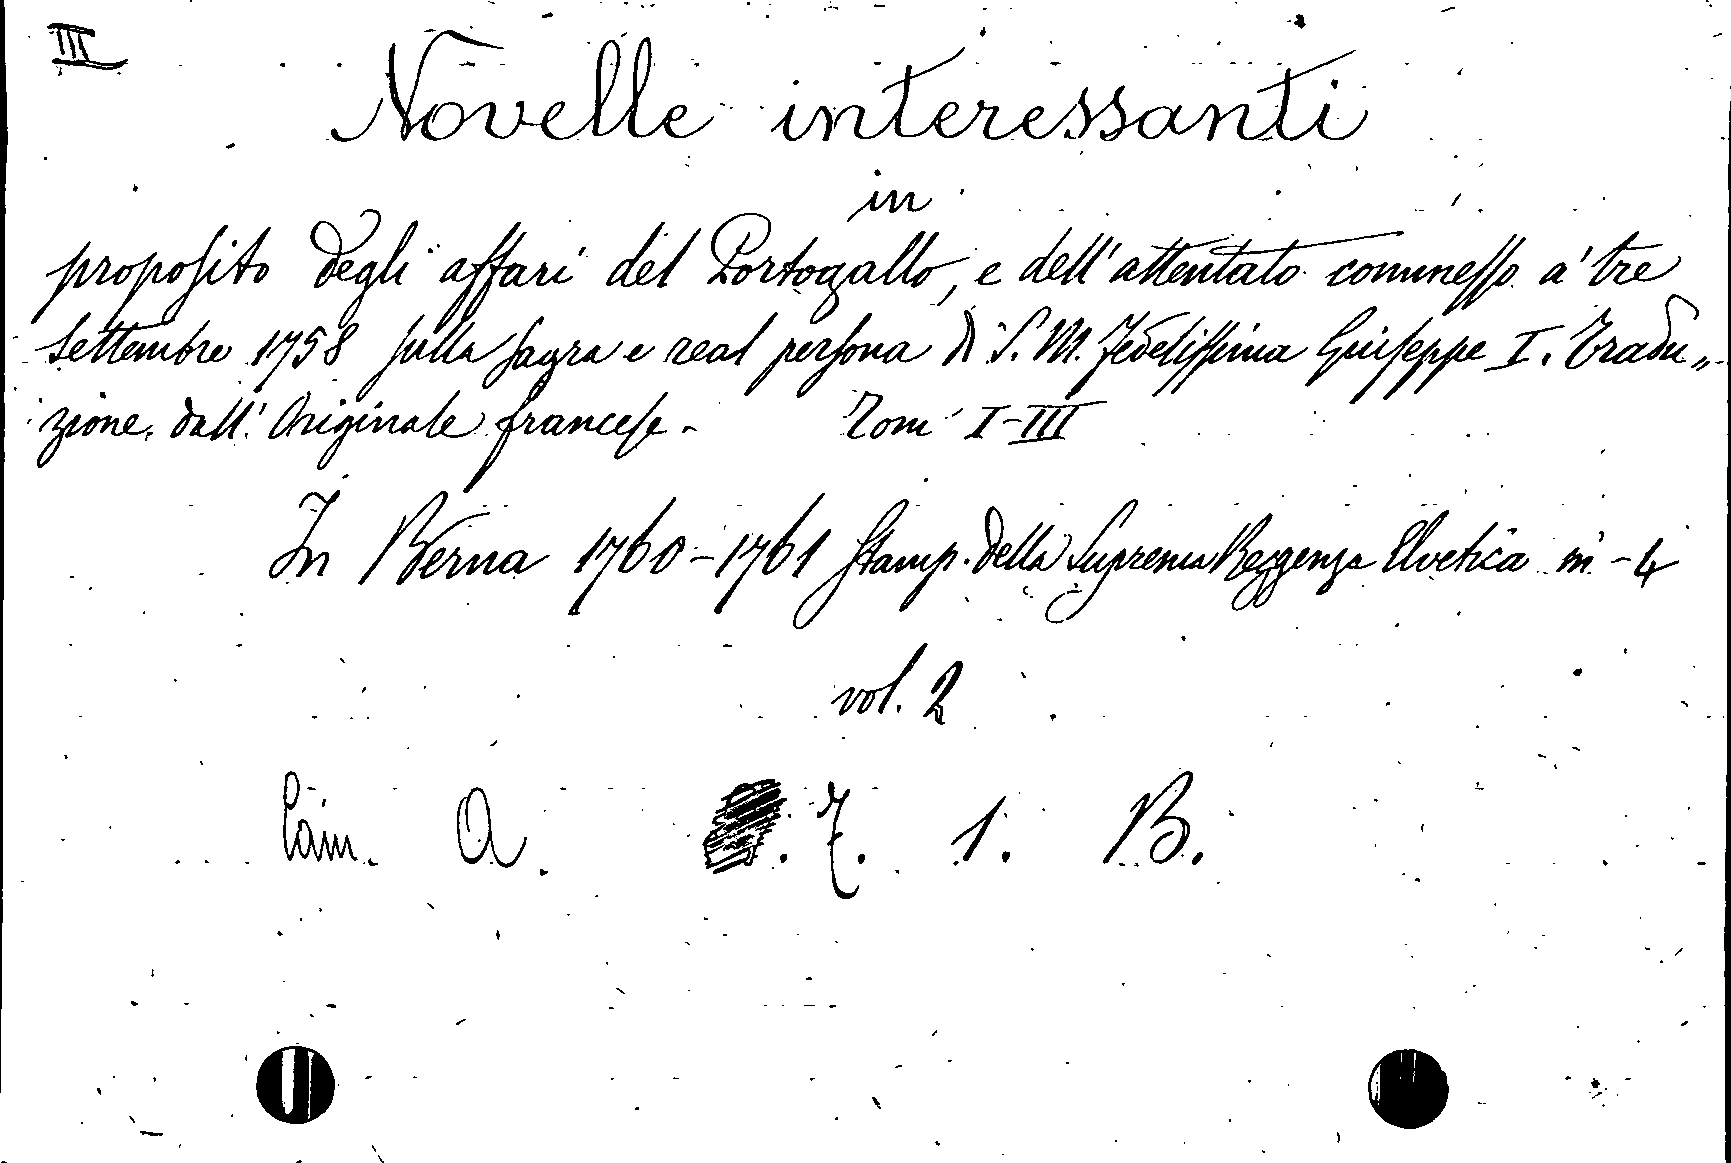 III
Novelle interessanti
in
proposito degli affari del Portogallo, e dell'attentato commesso a' tre
settembre 1758 sulla sagra e real persona di S. M. Fedelissima Giuseppe I. Tradu„
zione dall'Originale francese. Tomi I-III
In Berna 1760-1761 Stamp. della Suprema Reggenza Elvetica in-4
vol. 2
Cam. A. Z. 1. B.